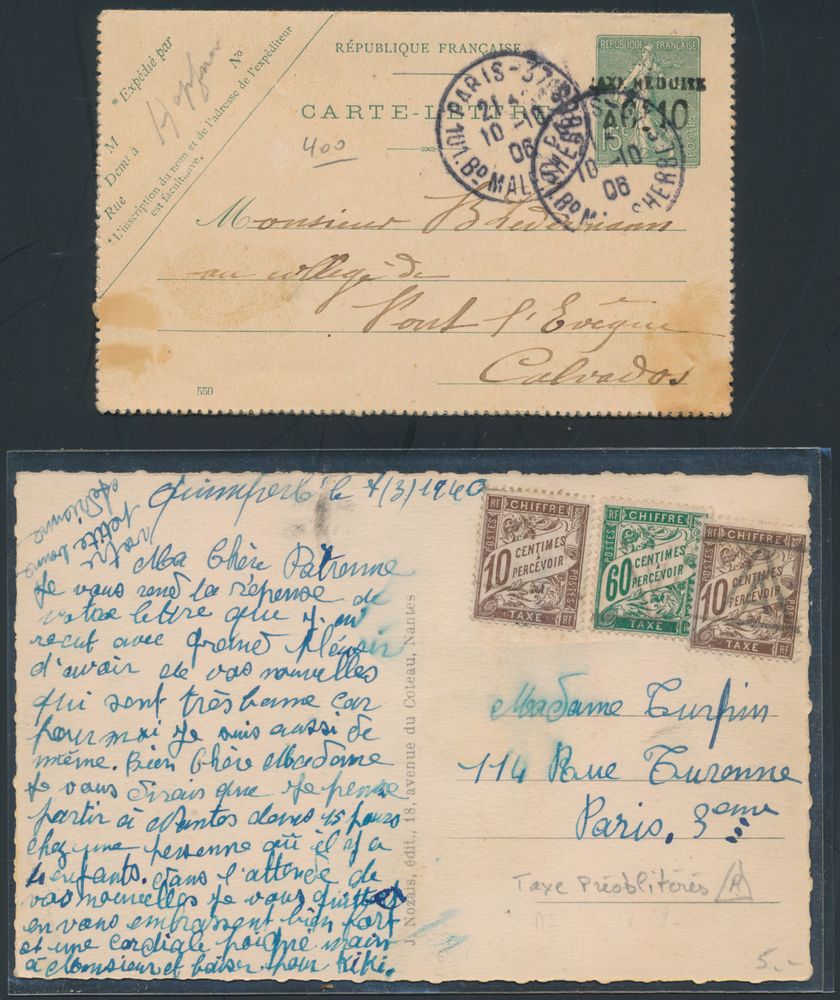 * Expédié par
M
Demt à
Rue
N°
* L'inscription du nom et de l'adresse de l'expéditeur
est facultative.
400
RÉPUBLIQUE FRANÇAISE
CARTE-LETTRE
PARIS-37
10-10
06
101. Bd MALESHERBES
10-10
06
RÉPUBLIQUE FRANÇAISE
TAXE RÉDUITE
A 0f10
15c
POSTES
Monsieur B Liedermann
au collège de
Pont l'Evêque
Calvados
550
Quimperlé le 7/3/1940
votre petite bonne
Ma Chère Patronne
Je vous rend la réponse de
votre lettre que j'ai
recut avec grand plaisir
d'avoir de vos nouvelles
qui sont très bonne car
pour moi je suis aussi de
même. Bien Chère Madame
Je vous dirais que je pense
partir à Nantes dans 15 jours
chez une personne où il y a
4 enfants. dans l'attende de
vos nouvelles je vous quitte
en vous embrassent bien fort
et une cordiale poigné main
à Monsieur et baiser pour Kiki.
J. Nozais, édit., 18, avenue du Coteau, Nantes
RF CHIFFRE
POSTES
10 CENTIMES
À
PERCEVOIR
TAXE
RF CHIFFRE
POSTES
60 CENTIMES
À
PERCEVOIR
TAXE
RF CHIFFRE
POSTES
10 CENTIMES
À
PERCEVOIR
TAXE
Madame Turpin
114 Rue Turenne
Paris, 3eme
Taxe Préoblitérés A
5.-